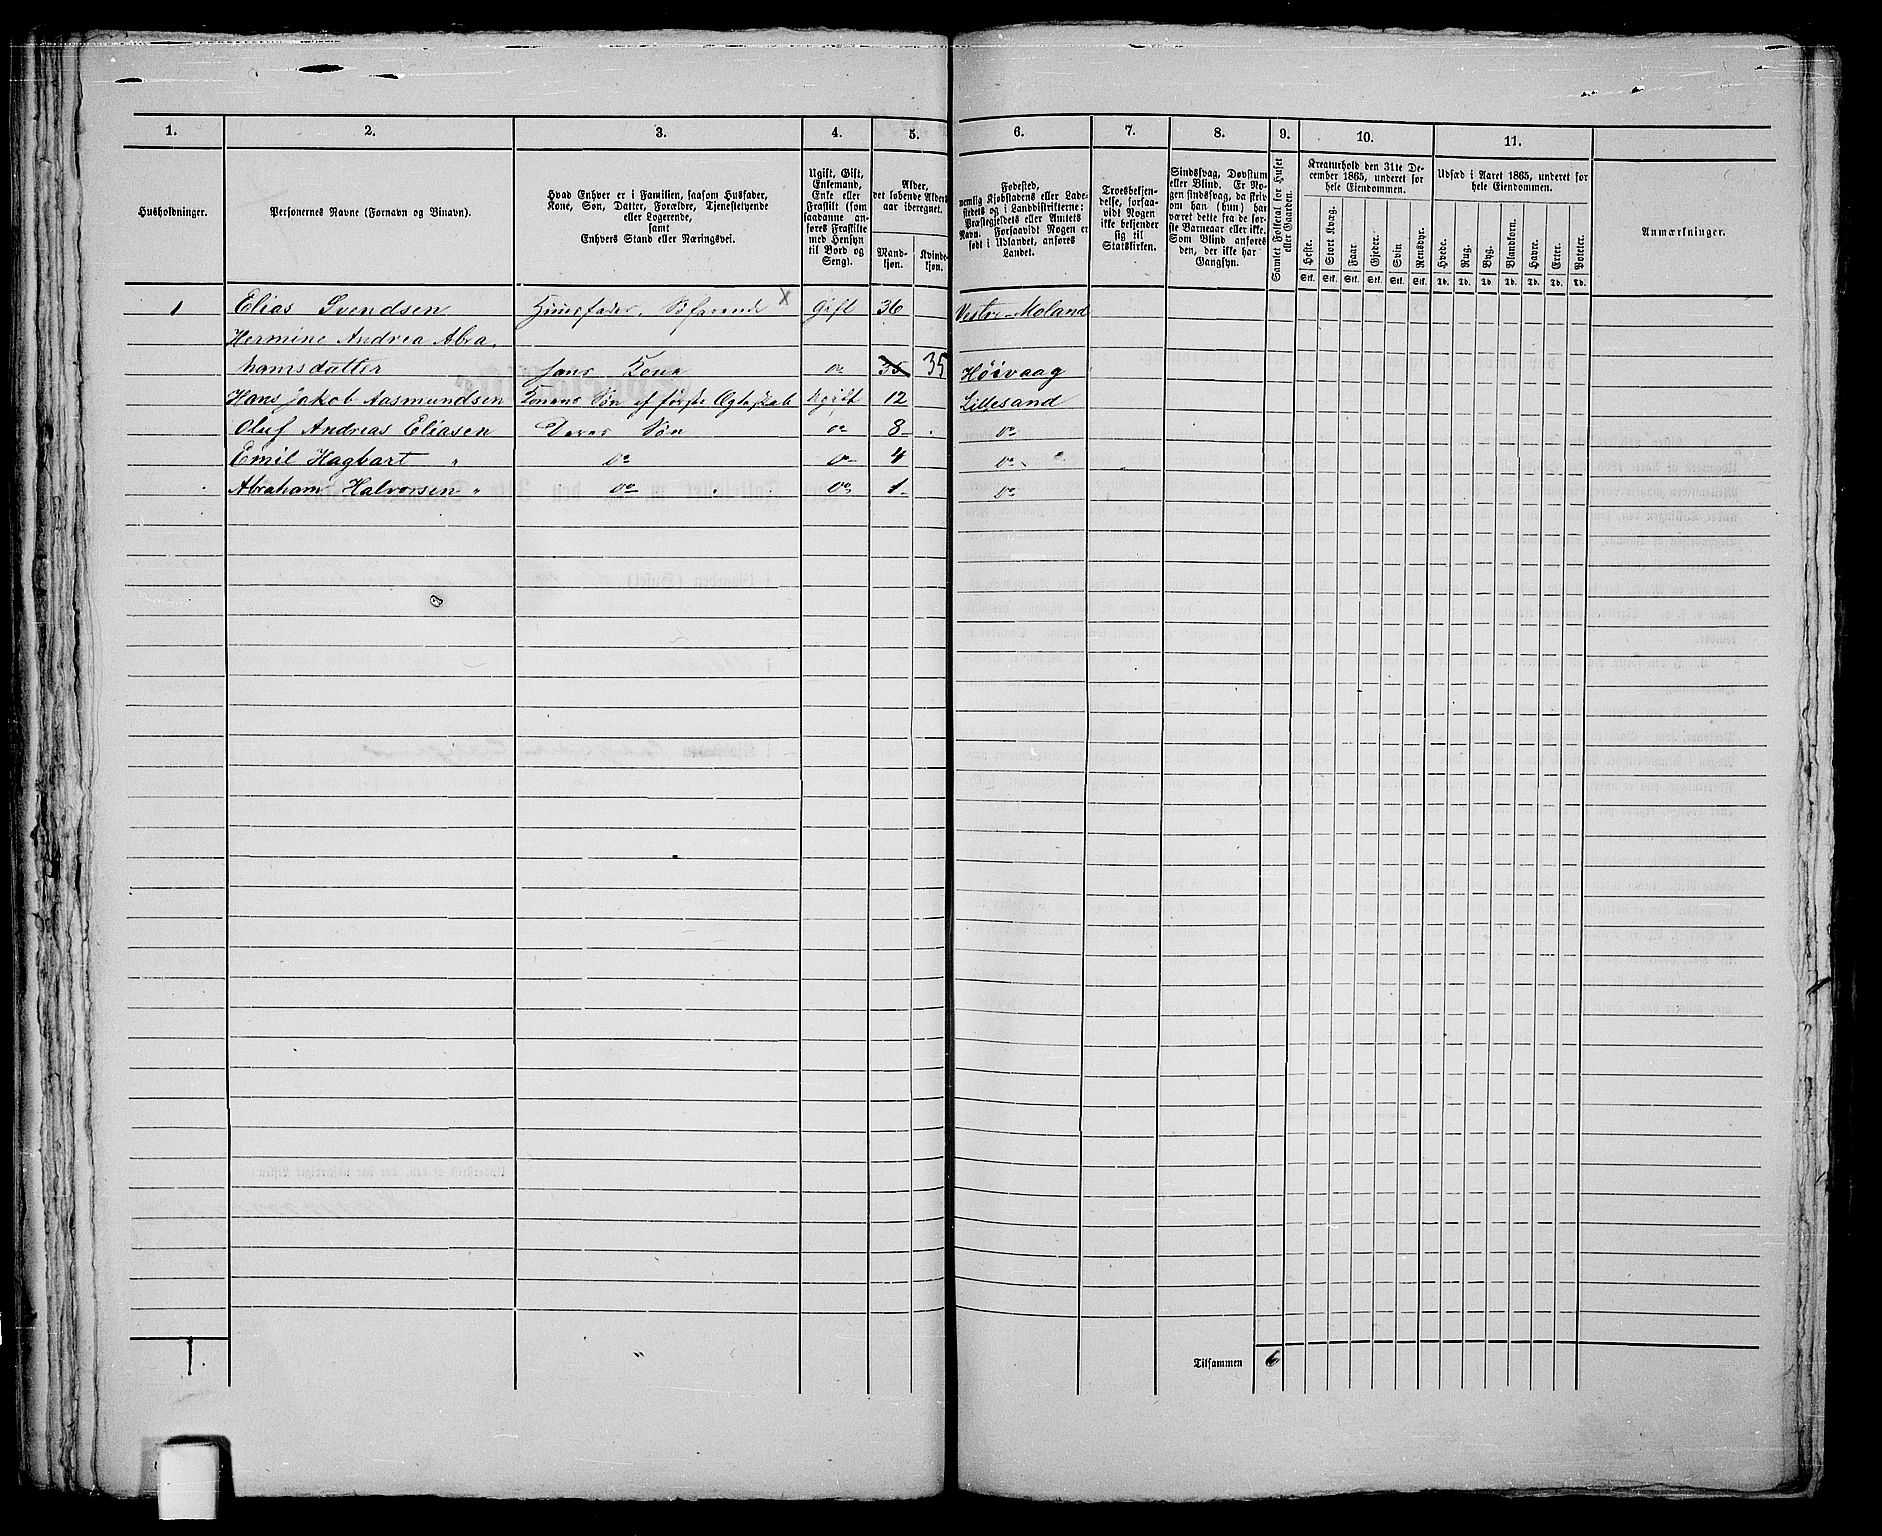 1. 2. 3. 4. 5. 6. 7. 8. 9. 10. 11.
Husholdninger.
Personernes Navne (Fornavn og Binavn).
Hvad Enhver er i Familien, saasom Husfader,
Kone, Søn, Datter, Forældre, Tjenestetyende
eller Logerende,
samt
Enhvers Stand eller Næringsvei.
Ugift, Gift,
Enkemand,
Enke eller
Fraskilt (som
saadanne an-
føres Fraskilte
med Hensyn
til Bord og
Seng).
Alder,
det løbende Alders-
aar iberegnet.
Mand-
kjøn.
Kvinde-
kjøn.
Fødested,
nemlig Kjøbstadens eller Lade-
stedets og i Landdistrikterne:
Præstegjeldets eller Amtets
Navn. Forsaavidt Nogen er
født i Udlandet, anføres
Landet.
Troesbekjen-
delse, forsaa-
vidt Nogen
ikke bekjender
sig til
Statskirken.
Sindssvag, Døvstum
eller Blind. Er No-
gen sindssvag, da skriv
om han (hun) har
været dette fra de før-
ste Barneaar eller ikke.
Som Blind anføres
den, der ikke har
Gangsyn.
Samlet Folketal for Huset
eller Gaarden.
Kreaturhold den 31te De-
cember 1865, underet for
hele Eiendommen.
Heste. Stort Kvæg. Faar Gjeder. Svin Rensdyr.
Stk. Stk. Stk. Stk. Stk. Stk.
Udsæd i Aaret 1865, underet for
hele Eiendommen.
Hvede. Rug. Byg. Blandkorn. Havre. Erter. Poteter.
Td. Td. Td. Td. Td. Td. Td.
Anmærkninger.
1 Elias Svendsen Huusfader, Søfarende x Gift 36 Vestre-Moland
Hermine Andrea Abra-
hamsdatter hans Kone do 35 35 Høivaag
Hans Jakob Aasmundsen Konens Søn af første Ægteskab Ugift 12 Lillesand
Oluf Andreas Eliasen Deres Søn do 8 do
Emil Hagbart " do do 4 do
Abraham Halvorsen " do do 1 do
1.
Tilsammen 6